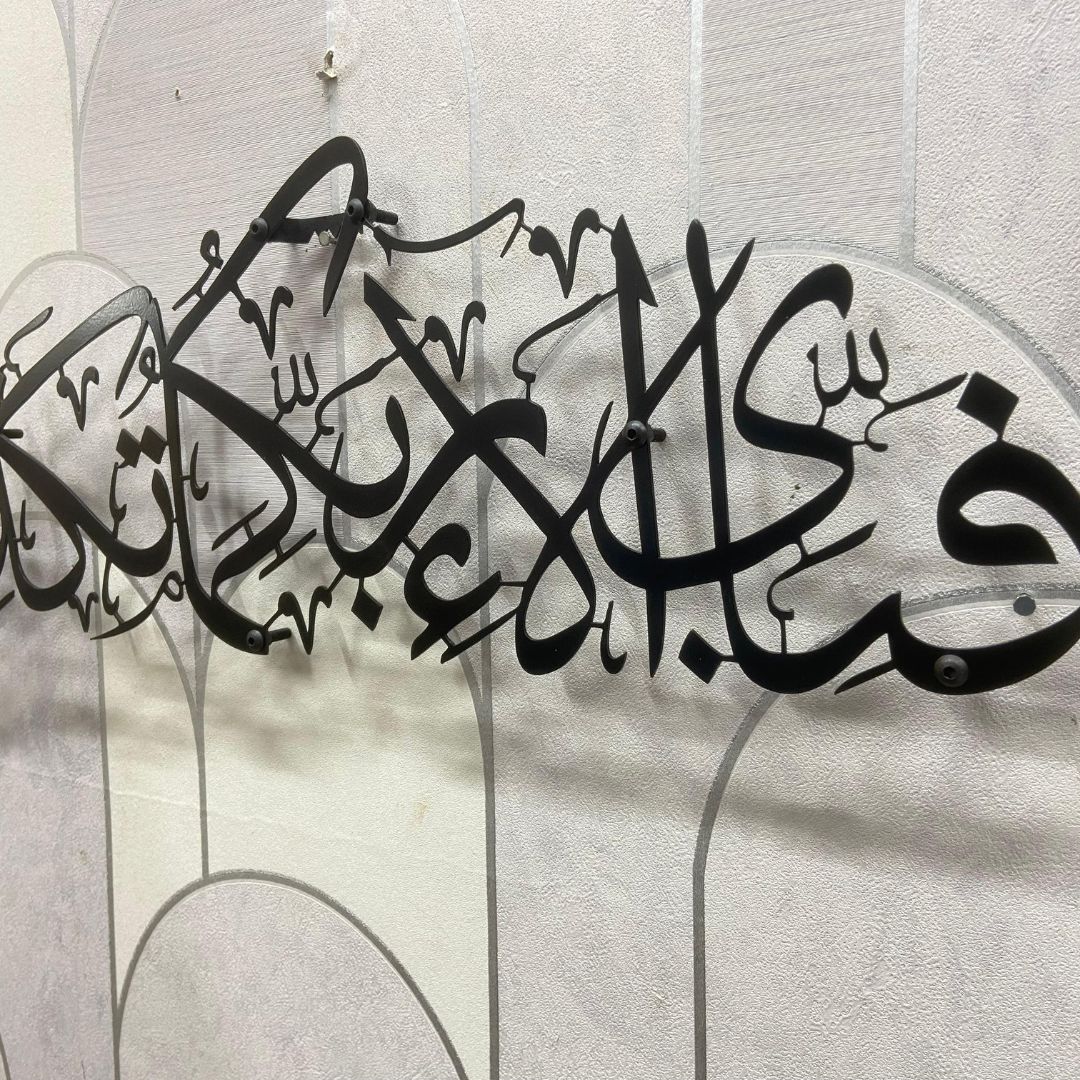 فَبِأَيِّ آلَاءِ رَبِّكُمَا